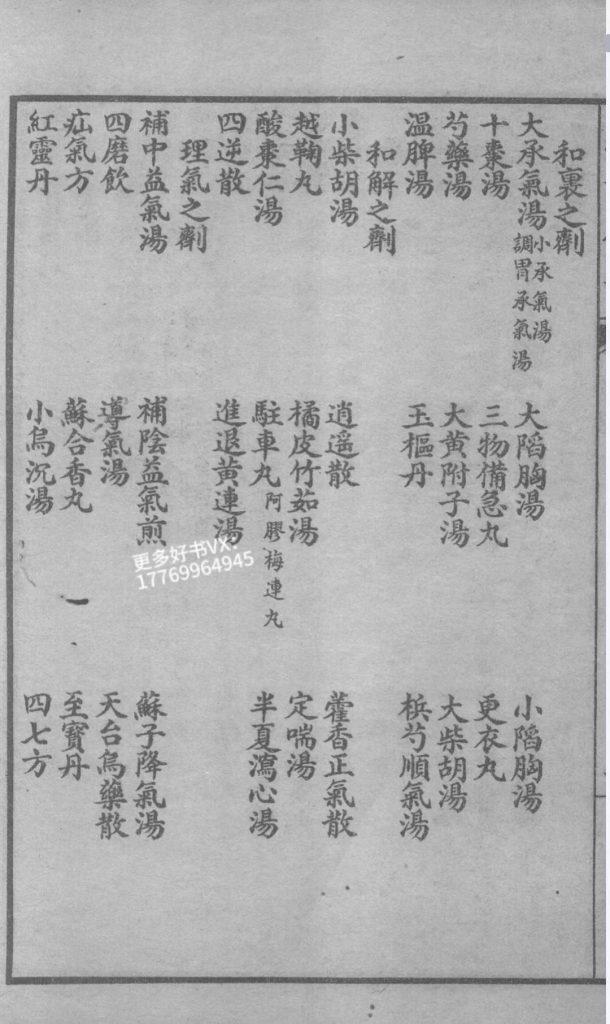 和裏之劑
大承氣湯 小承氣湯 調胃承氣湯 大陷胸湯 小陷胸湯
十棗湯 三物備急丸 更衣丸
芍藥湯 大黃附子湯 大柴胡湯
溫脾湯 玉樞丹 檳芍順氣湯
和解之劑
小柴胡湯 逍遥散 藿香正氣散
越鞠丸 橘皮竹茹湯 定喘湯
酸棗仁湯 駐車丸 阿膠梅連丸 半夏瀉心湯
四逆散 進退黃連湯
理氣之劑
補中益氣湯 補陰益氣煎 蘇子降氣湯
四磨飲 導氣湯 天台烏藥散
疝氣方 蘇合香丸 至寶丹
紅靈丹 小烏沉湯 四七方
一
更多好书VX:
17769964945